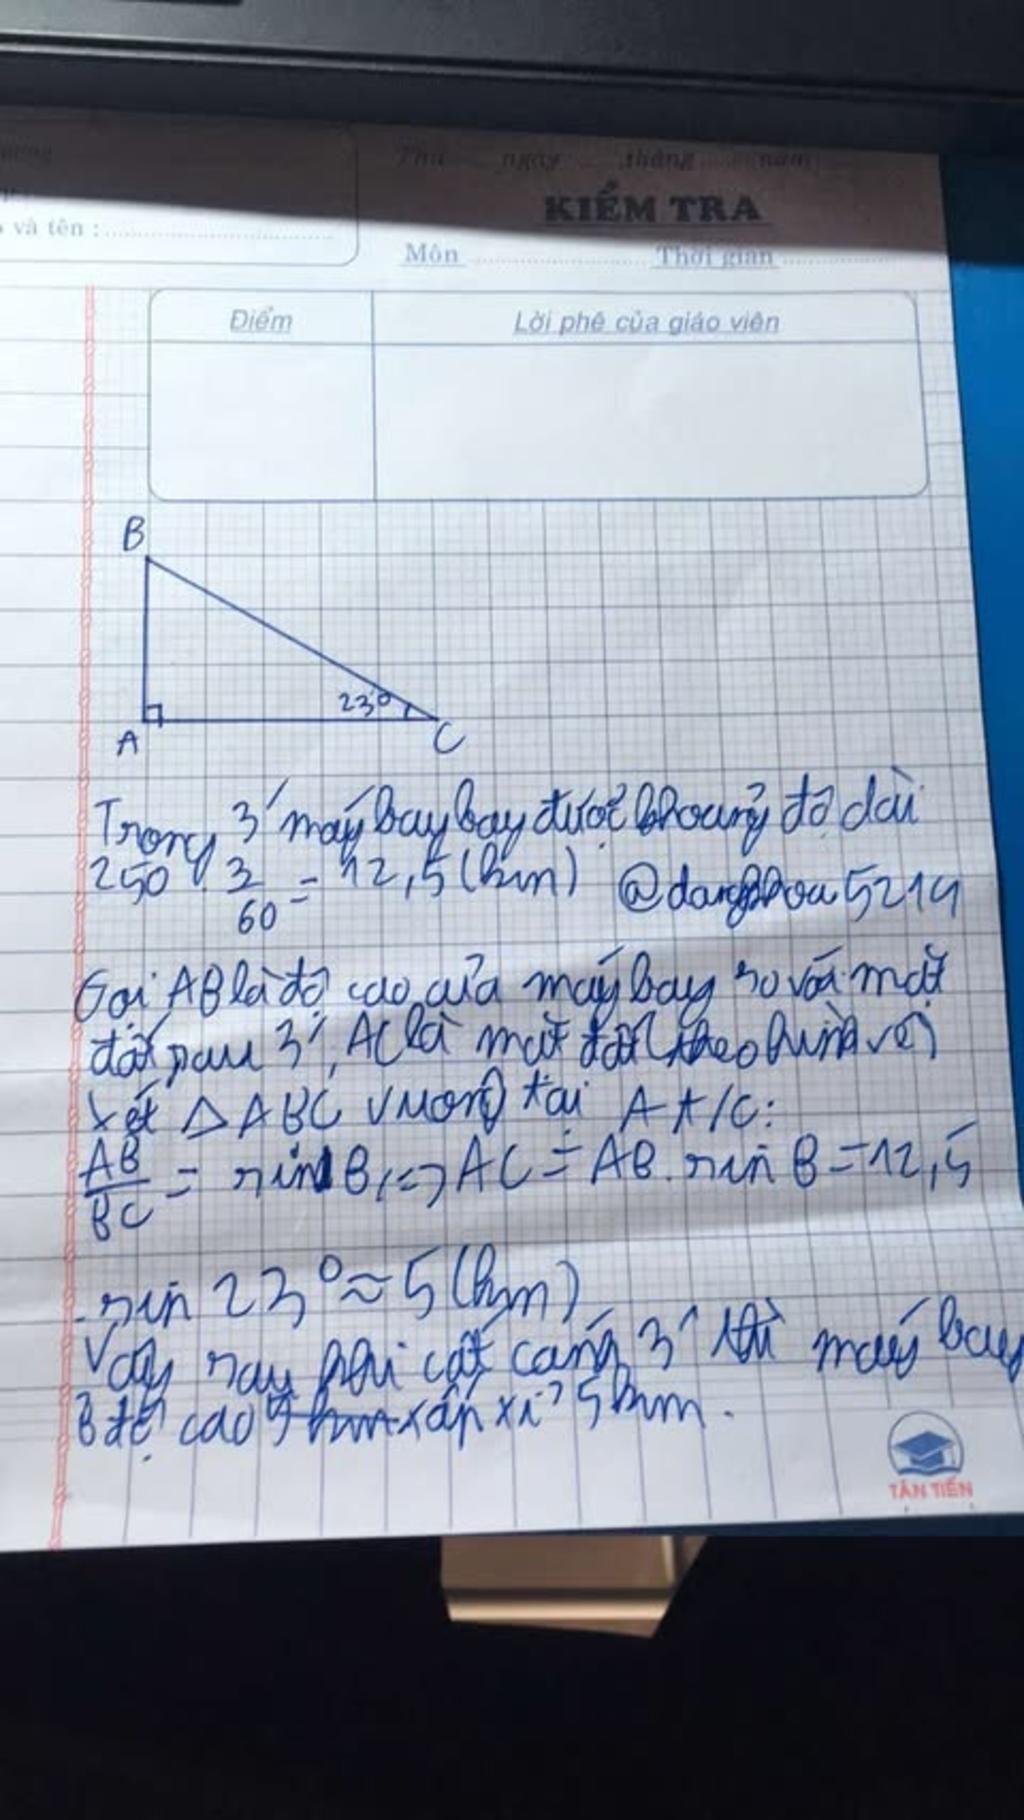 Thứ ngày tháng năm
KIỂM TRA
và tên :
Môn Thời gian
Điểm Lời phê của giáo viên
B
23°
A C
Trong 3' máy bay bay được khoảng độ dài
250 . 3/60 = 12,5 (km) @dangkhoa5214
Gọi AB là độ cao của máy bay so với mặt
đất sau 3', AC là mặt đất (theo hình vẽ)
Xét △ABC vuông tại A t/c:
AB/BC = sin B, <=> AC = AB . sin B = 12,5
. sin 23° ≈ 5 (km)
Vậy sau khi cất cánh 3' thì máy bay
ở độ cao xấp xỉ 5km.
TÂN TIẾN